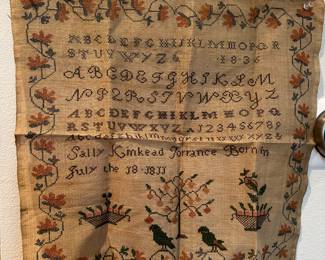 ABCDEFGHIJKLMNOPQR
STUVWXYZ& 1836
ABCDEFGHIKLM
NPQRSTUVWXYZ
ABCDEFGHIKLMNOPQ
RSTUVWXYZ 123456789
Sally Kinkead Torrance Born in
July the 18-1811